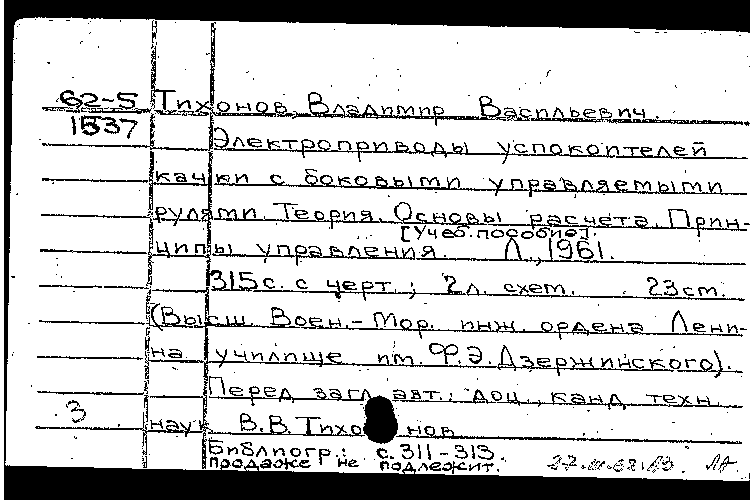 62-5 Тихонов, Владимир Васильевич.
1537
Электроприводы успокоителей
качки с боковыми управляемыми
рулями. Теория. Основы расчета. Прин-
[Учеб. пособие].
ципы управления. Л., 1961.
315 с. с черт.; 2 л. схем. 23 см.
(Высш. Воен.-Мор. инж. ордена Лени-
на училище им. Ф.Э. Дзержинского).
Перед загл. авт.: доц., канд. техн.
3 наук В.В. Тихонов
Библиогр.: с. 311-313.
Продаже не подлежит.